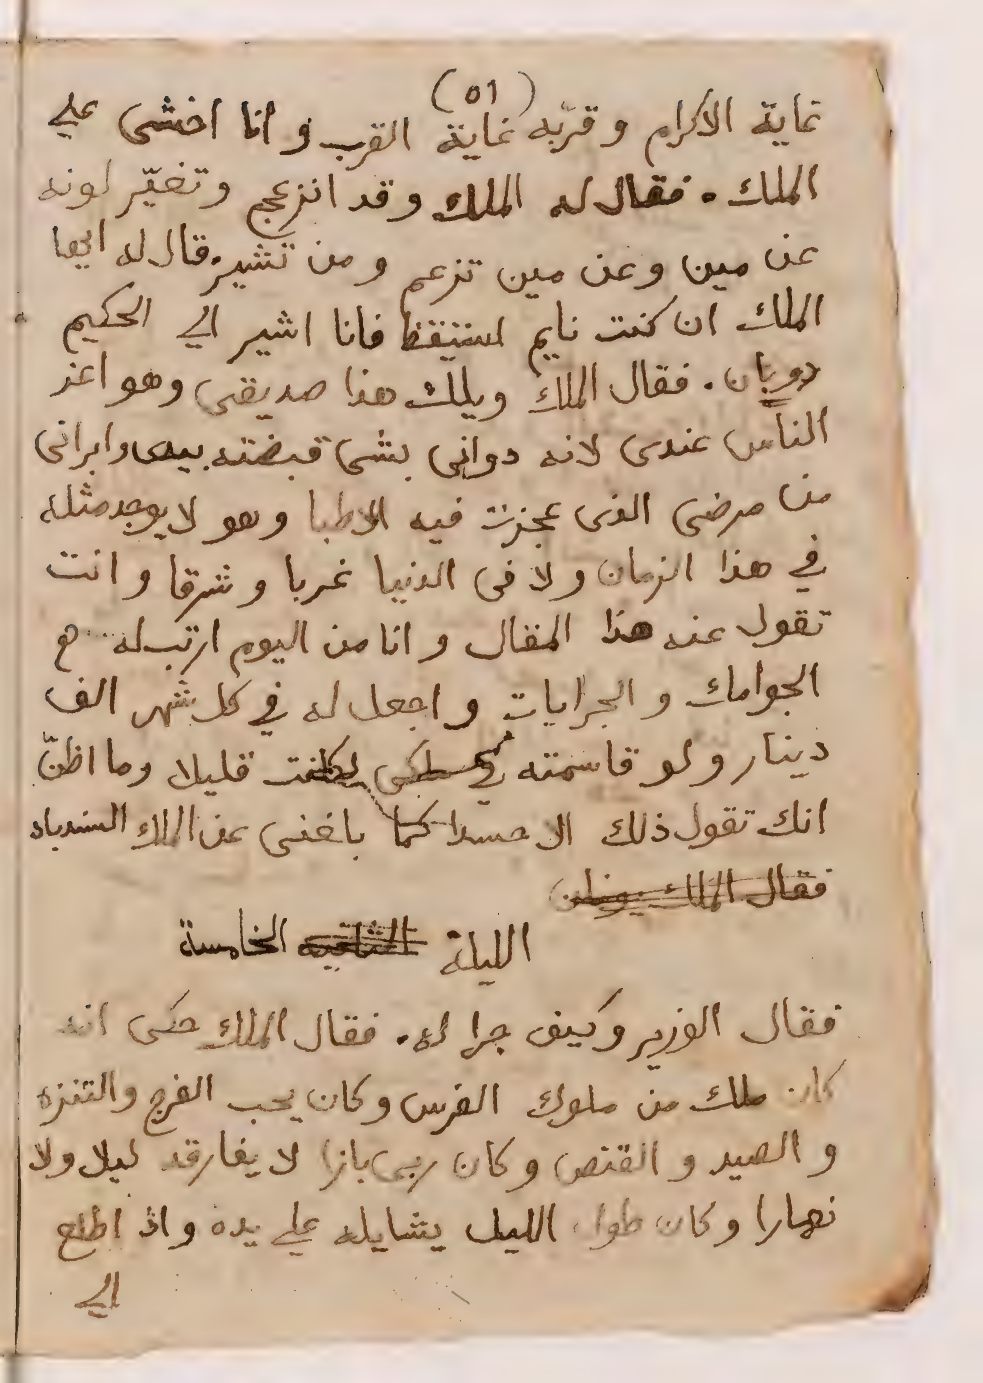 (٥١)
غاية الاكرام وقرّبه غاية القرب وانا اخشى علي
الملك . فقال له الملك وقد انزعج وتغيّر لونه
عن مين وعن مين تزعم ومن تشير . قال له ايها
الملك ان كنت نايم استيقظ فانا اشير الي الحكيم
دوبان . فقال الملك ويلك هذا صديقى وهو اعز
الناس عندى لانه دوانى بشى قبضته بيدى وابرانى
من مرضى الذى عجزت فيه الاطبا وهو لا يوجد مثله
في هذا الزمان ولا فى الدنيا غربا وشرقا وانت
تقول عنه هذا المقال وانا من اليوم ارتب له
الجوامك والجرايات واجعل له في كل شهر الف
دينار ولو قاسمته في ملكى لكانت قليلا وما اظنّ
انك تقول ذلك الا حسدا كما بلغنى عن الملك السندباد
فقال الملك يونان
الليلة الخامسة
فقال الوزير وكيف جرا له . فقال الملك حكى انه
كان ملك من ملوك الفرس وكان يحب الفرج والتنزه
والصيد والقنص وكان ربى بازا لا يفارقه ليلا ولا
نهارا وكان طول الليل يشايله علي يده واذ اطلع
الي